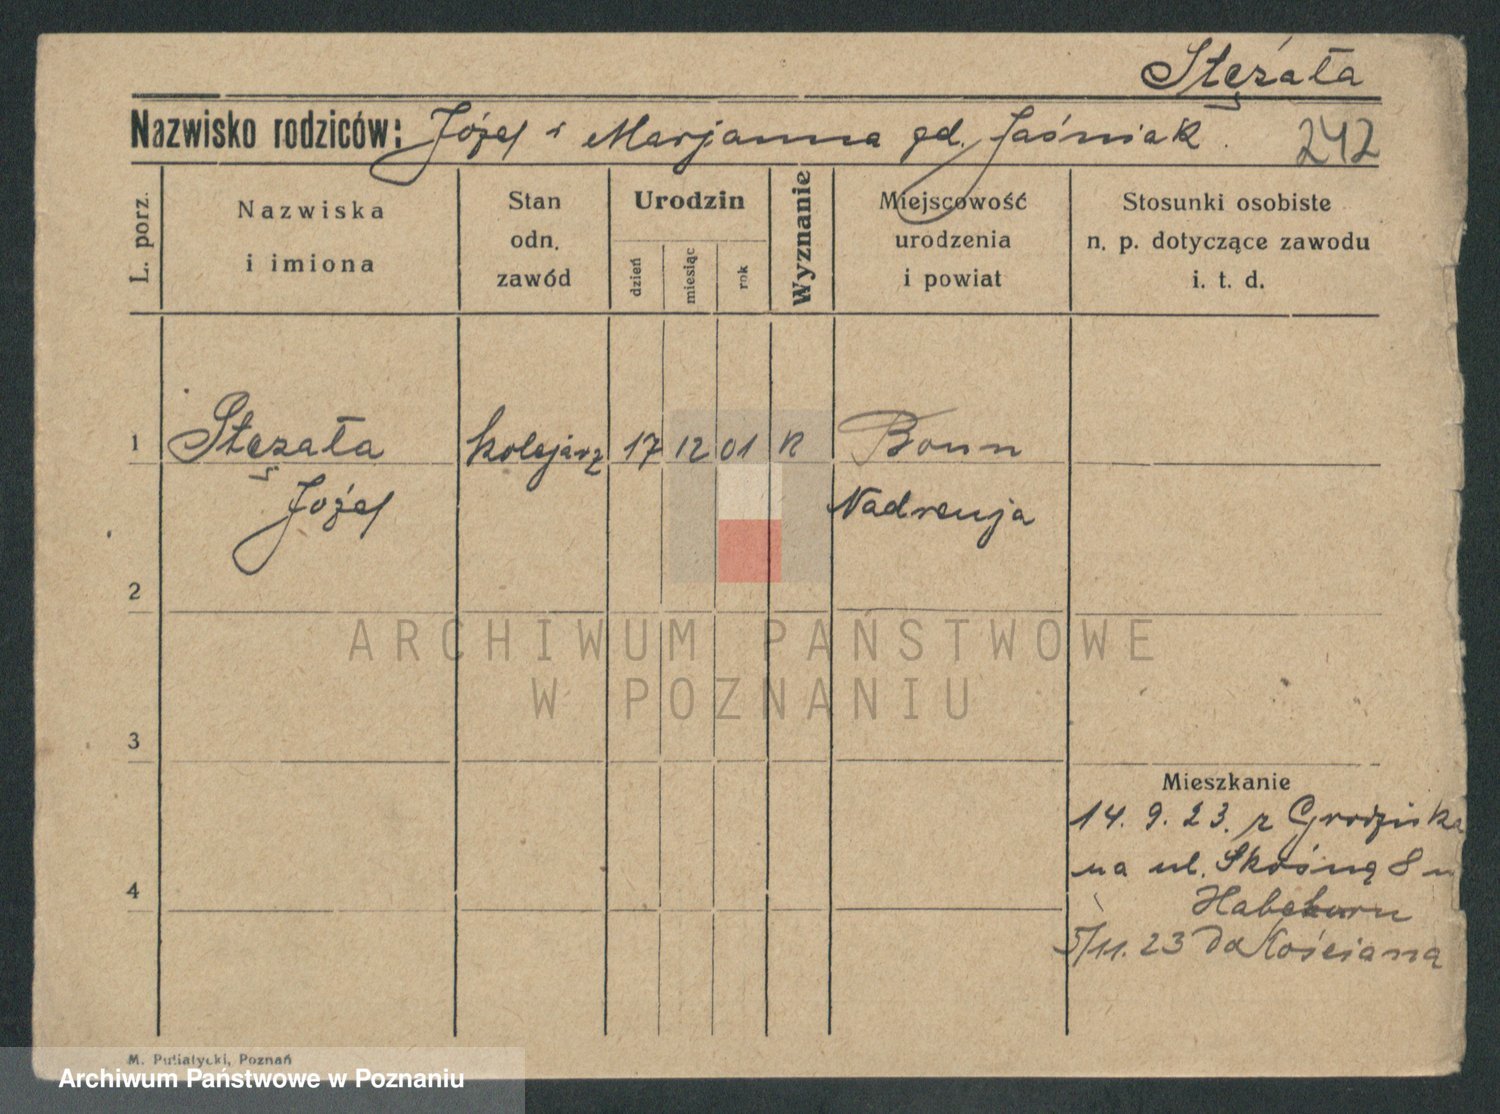 Stęszała
Nazwisko rodziców: Józef i Marjanna gd. Jaśniak. 242
L. porz.
Nazwiska
i imiona
Stan
odn.
zawód
Urodzin
dzień
miesiąc
rok
Wyznanie
Miejscowość
urodzenia
i powiat
Stosunki osobiste
n. p. dotyczące zawodu
i. t. d.
1 Stęszała kolejarz 17 12 01 k Bonn
Józef Nadrenja
2
ARCHIWUM PAŃSTWOWE
W POZNANIU
3
Mieszkanie
14. 9. 23. z Grodziska
na ul. Skośną 8 u
4
5/11. 23 do Kościana
M. Putiatycki, Poznań
Archiwum Państwowe w Poznaniu